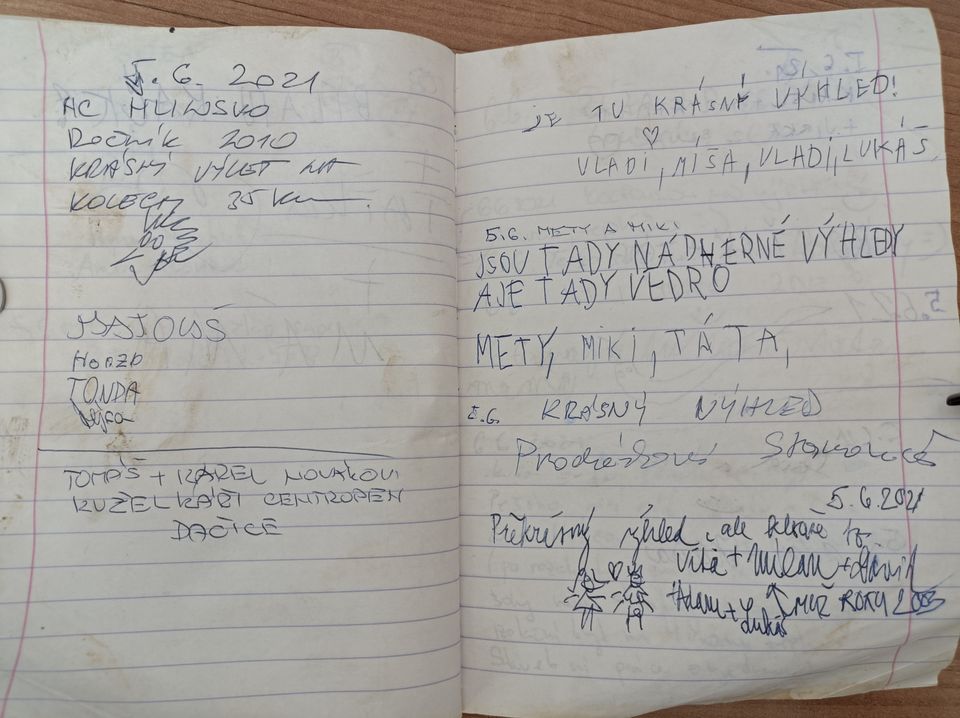 5. 6. 2021
AC HLINSKO
Ročník 2010
KRÁSNÝ VÝLET NA
KOLECH 35 Km
MATOUŠ
HONZA
TONDA
TOMÁŠ + KAREL NOVÁKOVI
KUŽELKÁŘI CENTROPEN
DAČICE
JE TU KRÁSNÝ VÝHLED!
VLADÍ, MÍŠA, VLADÍ, LUKÁŠ
5.6. METY A MIKI
JSOU TADY NÁDHERNÉ VÝHLEDY
A JE TADY VEDRO
METY, MIKI, TÁTA,
5.6. KRÁSNÝ VÝHLED
5.6.2021
Překrásný výhled, ale
Víťa + Milan + David
Adam + Lukáš MUŽ ROKU 2003